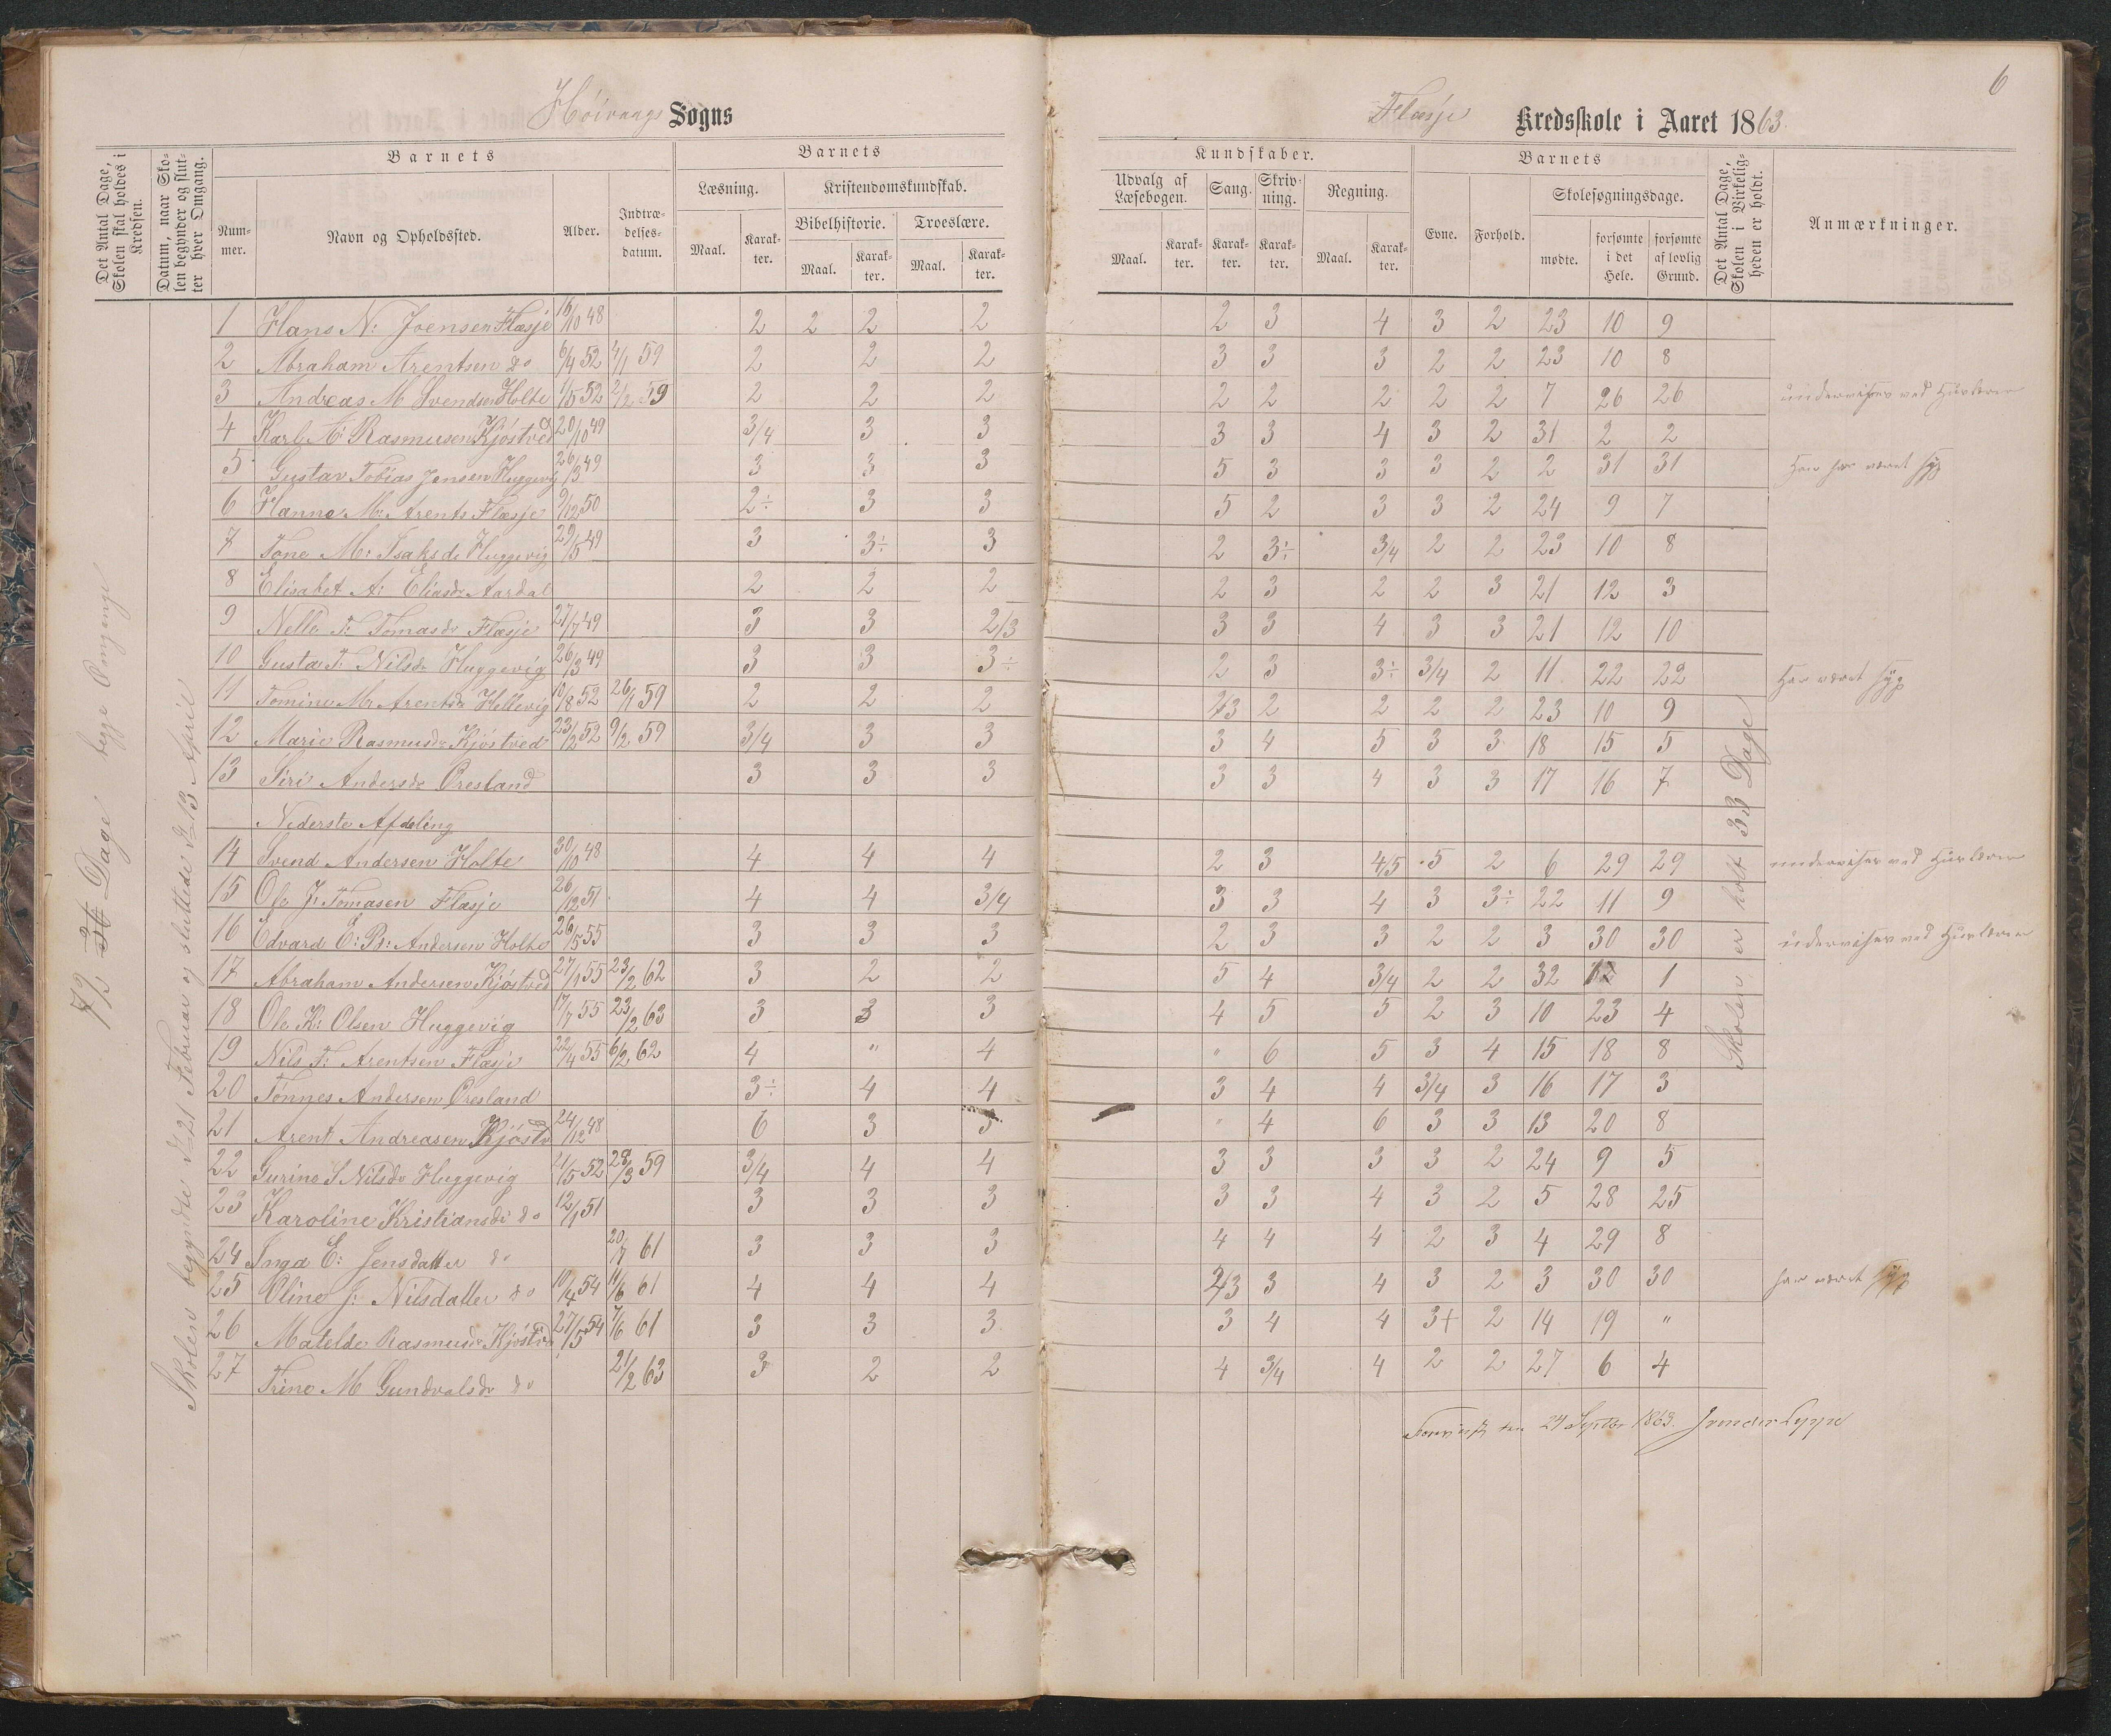 6
Høivaags Sogns
Flasje Kredsskole i Aaret 1863.
Det Antal Dage, Skolen skal holdes i Kredsen.
Datum, naar Skolen begynder og slutter hver Omgang.
Barnets
Nummer.
Navn og Opholdssted.
Alder.
Indtrædelsesdatum.
Barnets
Læsning.
Kristendomskundskab.
Bibelhistorie.
Troeslære.
Maal. Karakter. Maal. Karakter. Maal. Karakter.
Kundskaber.
Udvalg af Læsebogen.
Sang.
Skrivning.
Regning.
Maal. Karakter. Karakter. Karakter. Maal. Karakter.
Barnets
Evne. Forhold.
Skolesøgningsdage.
mødte. forsømte i det Hele. forsømte af lovlig Grund.
Det Antal Dage, Skolen i Virkeligheden er holdt.
Anmærkninger.
72 Dage begge Omgange
Skolen begyndte d. 21 Februar og sluttede d. 13 April
Skolen er holt 33 Dage
1 Hans N: Joensen Flasje 16/10 48 2 2 2 2 2 3 4 3 2 23 10 9
2 Abraham Arentsen do 6/4 52 4/1 59 2 2 2 3 3 3 2 2 23 10 8
3 Andreas M Svendsen Holte 1/5 52 2/2 59 2 2 2 2 2 2 2 2 7 26 26 undervises ved Huslærer
4 Karl A: Rasmusen Kjøstved 20/10 49 3/4 3 3 3 3 4 3 2 31 2 2
5 Gustav Tobias Jensen Huggevig 26/3 49 3 3 3 5 3 3 3 2 2 31 31 Han har været syg
6 Hanne M: Arents Flasje 9/12 50 2÷ 3 3 5 2 3 3 2 24 9 7
7 Tone M: Isaksdr Huggevig 29/5 49 3 3÷ 3 2 3÷ 3/4 2 2 23 10 8
8 Elisabet A: Eliasdr Aardal 2 2 2 2 3 2 2 3 21 12 3
9 Nelle T: Tomasdr Flasje 27/7 49 3 3 2/3 3 3 4 3 3 21 12 10
10 Gusta T: Nilsdr Huggevig 26/3 49 3 3 3÷ 2 3 3÷ 3/4 2 11 22 22 Har været syg
11 Tomine M: Arentsdr Hellevig 10/8 52 26/1 59 2 2 2 2/3 2 2 2 2 23 10 9
12 Marie Rasmusdr Kjøstved 23/2 52 9/2 59 3/4 3 3 3 4 5 3 3 18 15 5
13 Siri Andersdr Øresland 3 3 3 3 3 4 3 3 17 16 7
Nederste Afdeling
14 Svend Andersen Holte 30/10 48 4 4 4 2 3 4/5 5 2 6 29 29 undervises ved Huslærer
15 Ole J: Tomasen Flasje 26/12 51 4 4 3/4 3 3 4 3 3÷ 22 11 9
16 Edvard E: B: Andersen Holte 26/5 55 3 3 3 2 3 3 2 2 3 30 30 undervises ved Huslærer
17 Abraham Andersen Kjøstved 27/1 55 23/2 62 3 2 2 5 4 3/4 2 2 32 1 1
18 Ole K: Olsen Huggevig 17/7 55 23/2 63 3 3 3 4 5 5 2 3 10 23 4
19 Nils T: Arentsen Flasje 22/4 55 6/2 62 4 " 4 " 6 5 3 4 15 18 8
20 Tønnes Andersen Øresland 3÷ 4 4 3 4 4 3/4 3 16 17 3
21 Arent Andreasen Kjøstvd 24/12 48 6 3 3 " 4 6 3 3 13 20 8
22 Gurine S Nilsdr Huggevig 21/5 52 28/3 59 3/4 4 4 3 3 3 3 2 24 9 5
23 Karoline Kristiansdr do 12/1 51 3 3 3 3 3 4 3 2 5 28 25
24 Inga E: Jensdatter do 20/7 61 3 3 3 4 4 4 2 3 4 29 8
25 Oline J: Nilsdatter do 10/4 54 11/6 61 4 4 4 2/3 3 4 3 2 3 30 30 har været syg
26 Matelde Rasmusdr Kjøstvd 27/5 54 7/6 61 3 3 3 3 4 4 3+ 2 14 19 "
27 Trine M Gundvalsdr do 21/2 63 3 2 2 4 3/4 4 2 2 27 6 4
den 24 Septbr 1863.